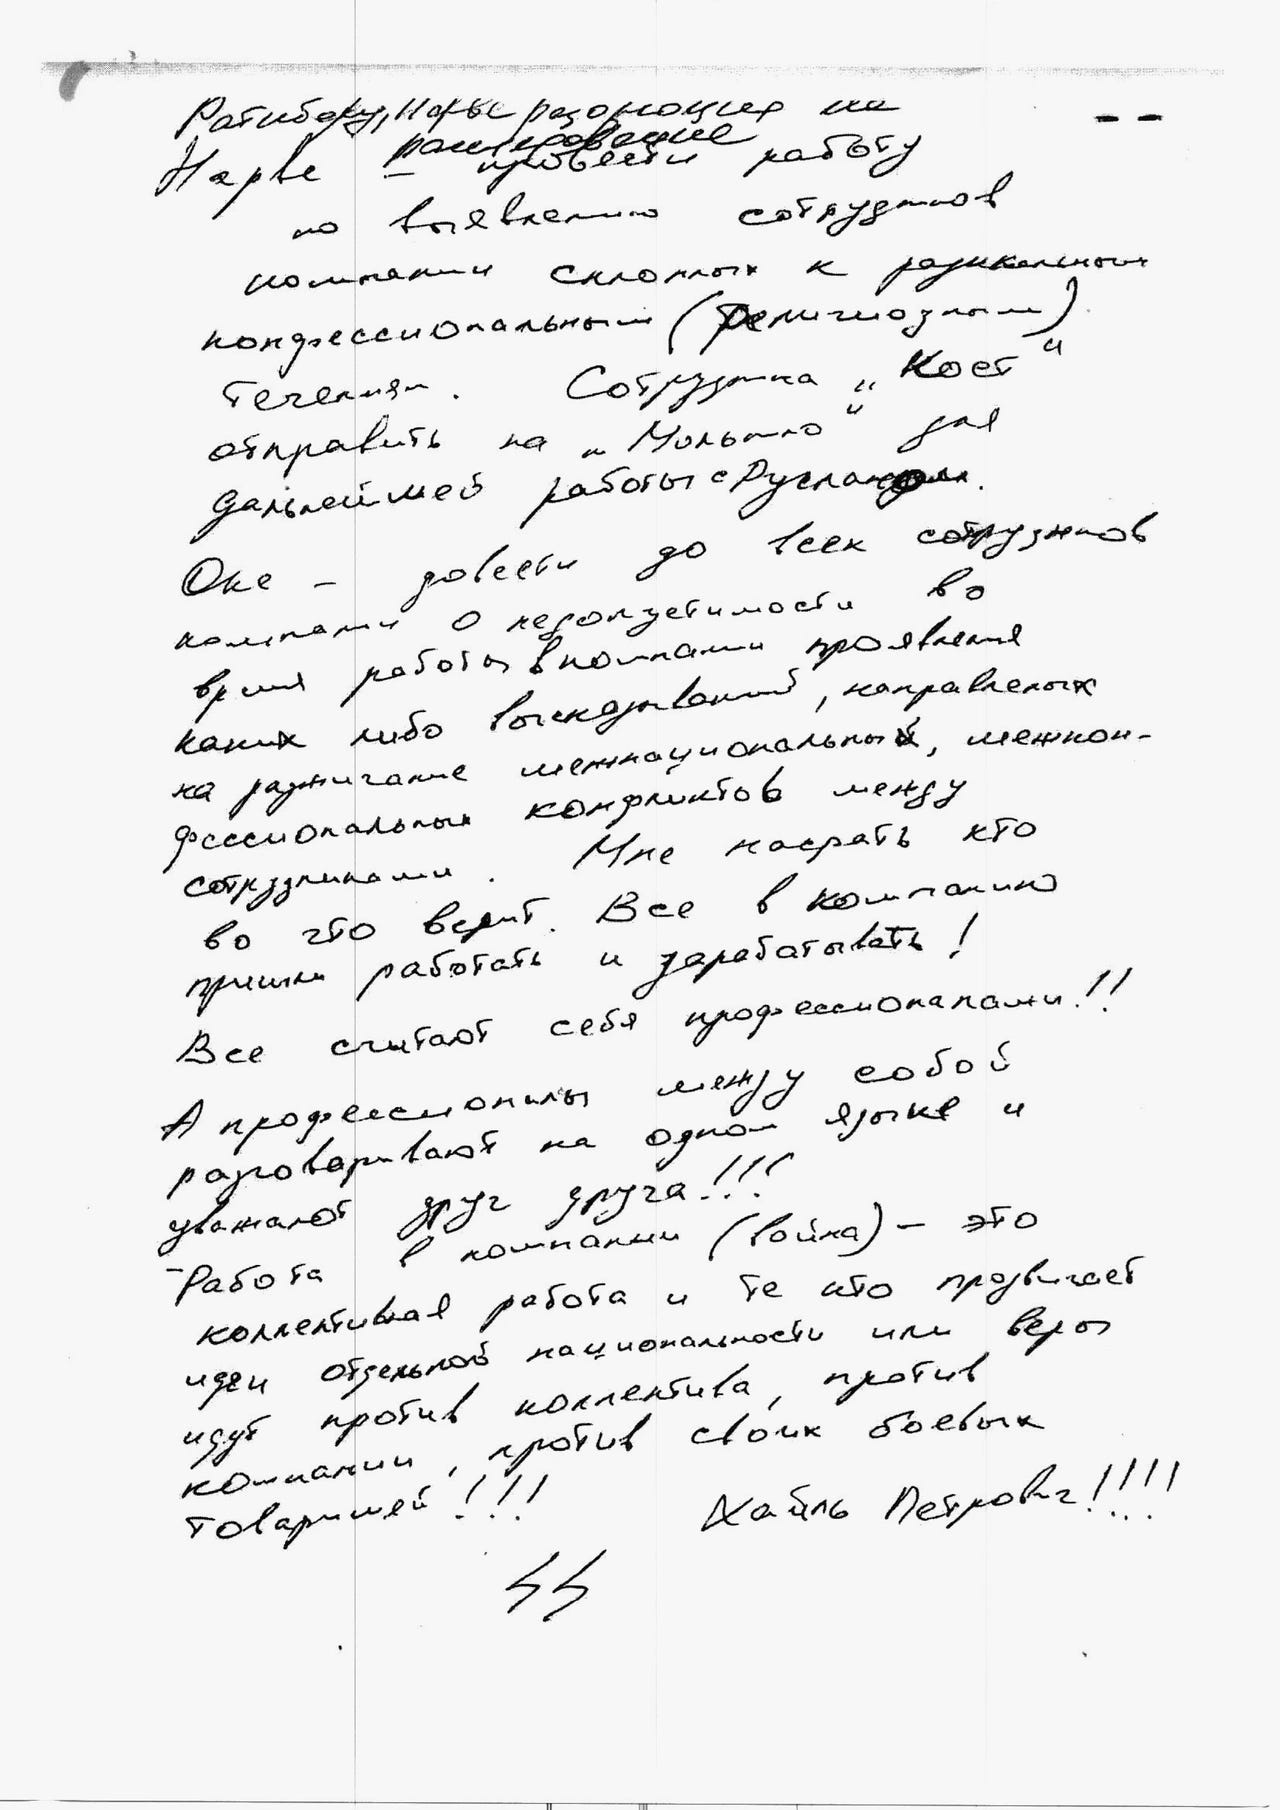 Ратибору, Нарве
расследование
Нарве – провести работу
по выявлению сотрудников
компании склонных к радикальным
конфессиональным (религиозным)
течениям. Сотрудника „Кост"
отправить на „Молькино" для
дальнейшей работы с Русланом.
Оке – довести до всех сотрудников
компании о недопустимости во
время работы в компании проявления
каких либо высказываний, направленых
на разжигание межнациональный, межкон-
фессиональных конфликтов между
сотрудниками. Мне насрать кто
во что верит. Все в компанию
пришли работать и зарабатывать!
Все считают себя профессионалами!!
А профессионалы между собой
разговаривают на одном языке и
уважают друг друга!!!
Работа в компании (война) – это
коллективная работа и те кто продвигает
идеи отдельной национальности или веры
идут против коллектива, против
компании, против своих боевых
товарищей!!! Хайль Петрович!!!!
ϟϟ